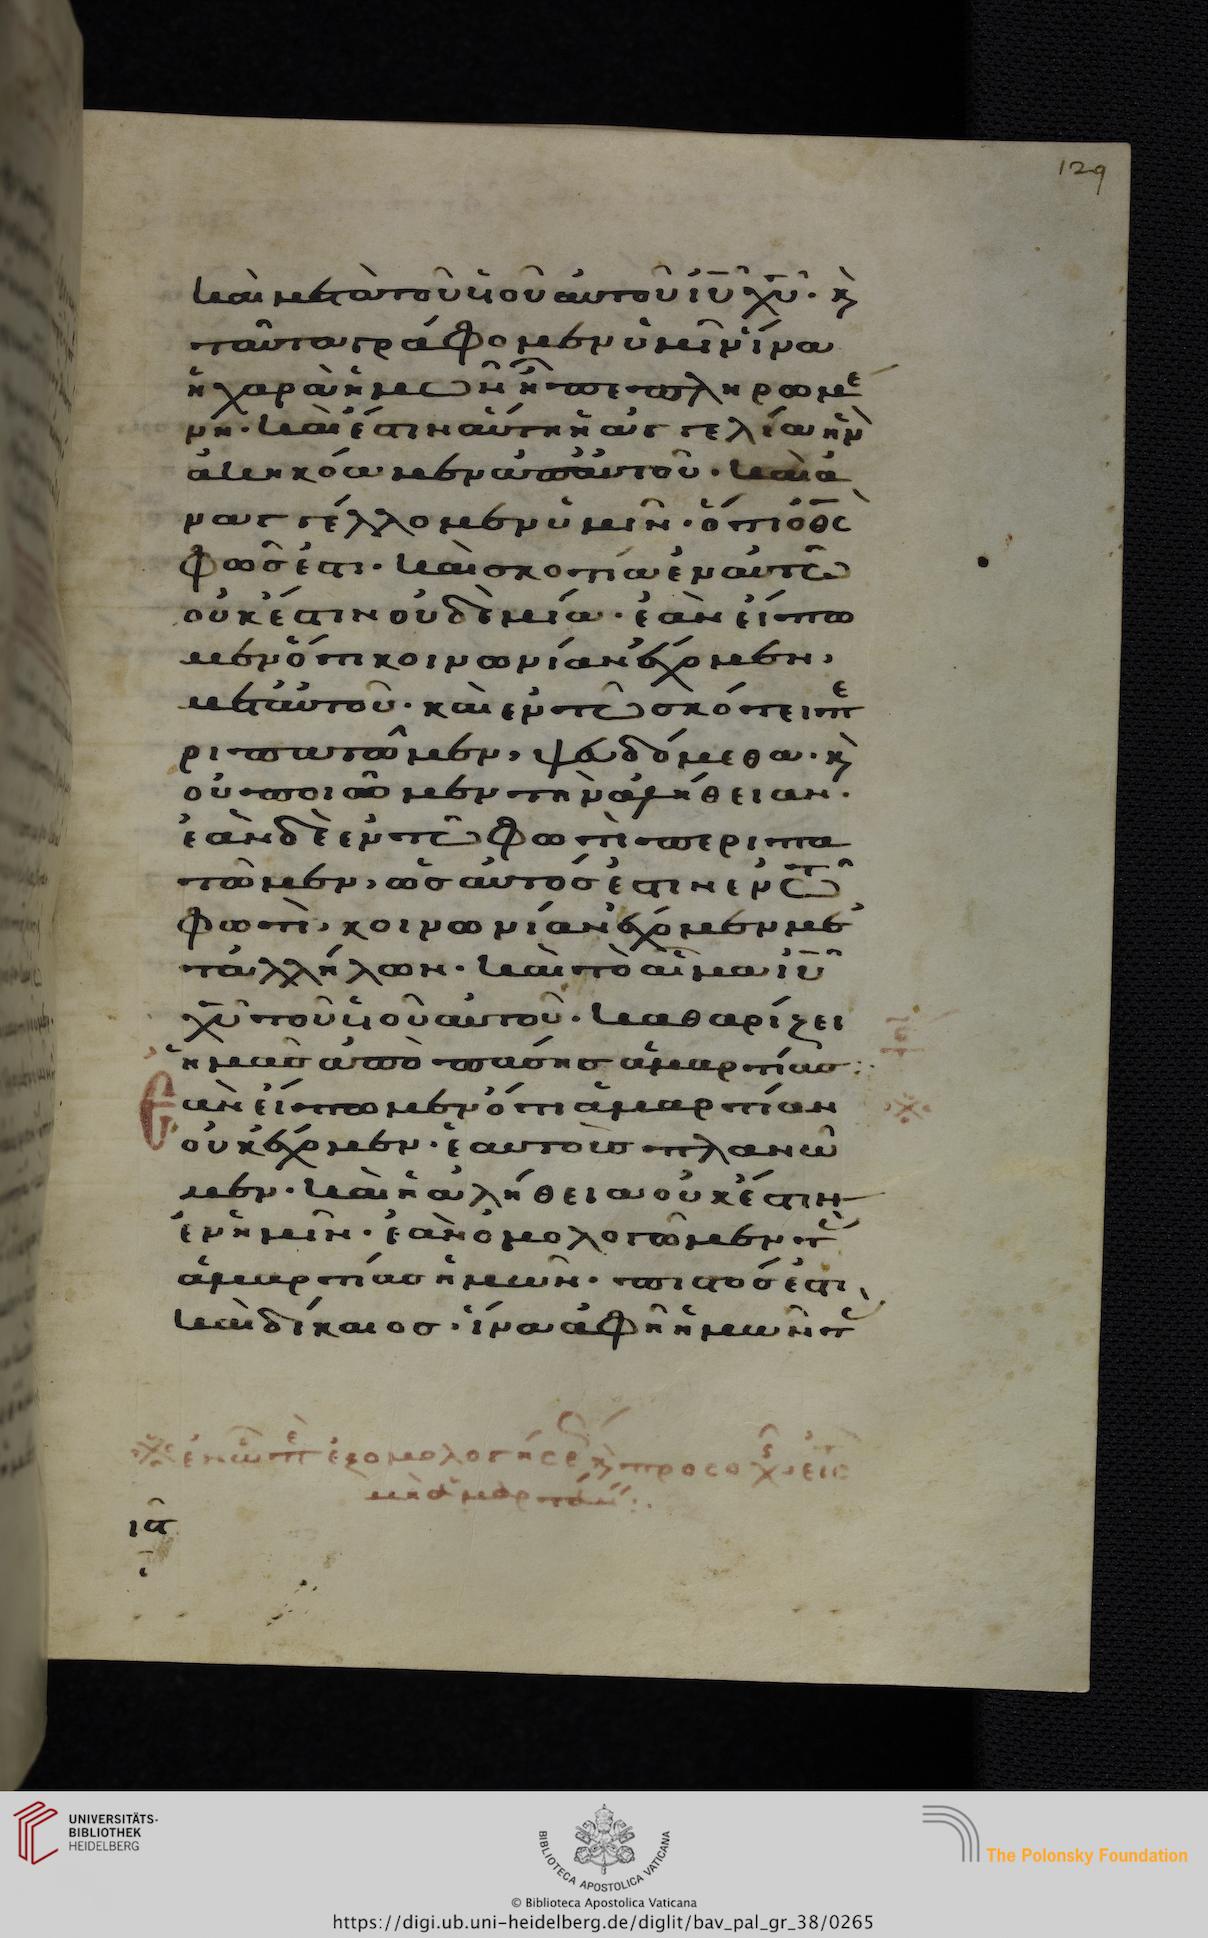 129
καὶ μετὰ τοῦ υἱοῦ αὐτοῦ ιυ χυ · κ
ταῦτα γράφομεν ὑμῖν ἵνα
ἡ χαρὰ ἡμῶν ἦ πεπληρωμέ
νη · καὶ ἔστιν αὕτη ἡ ἀγγελία ἣν
ἀκηκόαμεν ἀπ' αὐτοῦ · καὶ ἀ
ναγγέλλομεν ὑμῖν · ὅτι ὁ θς
φῶς ἐστι · καὶ σκοτία ἐν αὐτῶ
οὐκ ἔστιν οὐδὲ μία · ἐὰν εἴπω
μεν ὅτι κοινωνίαν ἔχομεν,
μετ' αὐτοῦ · καὶ ἐν τῶ σκότει πε
ριπατῶμεν, ψευδόμεθα · κ
οὐ ποιοῦμεν τὴν ἀλήθειαν ·
ἐὰν δὲ ἐν τῶ φωτὶ περιπα
τῶμεν, ὡς αὐτός ἐστιν ἐν τῶ
φωτὶ, κοινωνίαν ἔχομεν με
τ' ἀλλήλων · καὶ τὸ αἷμα ιυ
χυ τοῦ υἱοῦ αὐτοῦ · καθαρίζει
ἡμᾶς ἀπὸ πάσης ἁμαρτίας :
Ἐὰν εἴπωμεν ὅτι ἁμαρτίαν
οὐκ ἔχομεν · ἑαυτοὺς πλανῶ
μεν · καὶ ἡ ἀλήθεια οὐκ ἔστιν
ἐν ἡμῖν · ἐὰν ὁμολογῶμεν τ
ἁμαρτίας ἡμῶν · πιστός ἐστι
καὶ δίκαιος · ἵνα ἀφῆ ἡμῶν τ
μὴ ἁμαρτάν
UNIVERSITÄTS-
BIBLIOTHEK
HEIDELBERG
BIBLIOTECA APOSTOLICA VATICANA
The Polonsky Foundation
© Biblioteca Apostolica Vaticana
https://digi.ub.uni-heidelberg.de/diglit/bav_pal_gr_38/0265